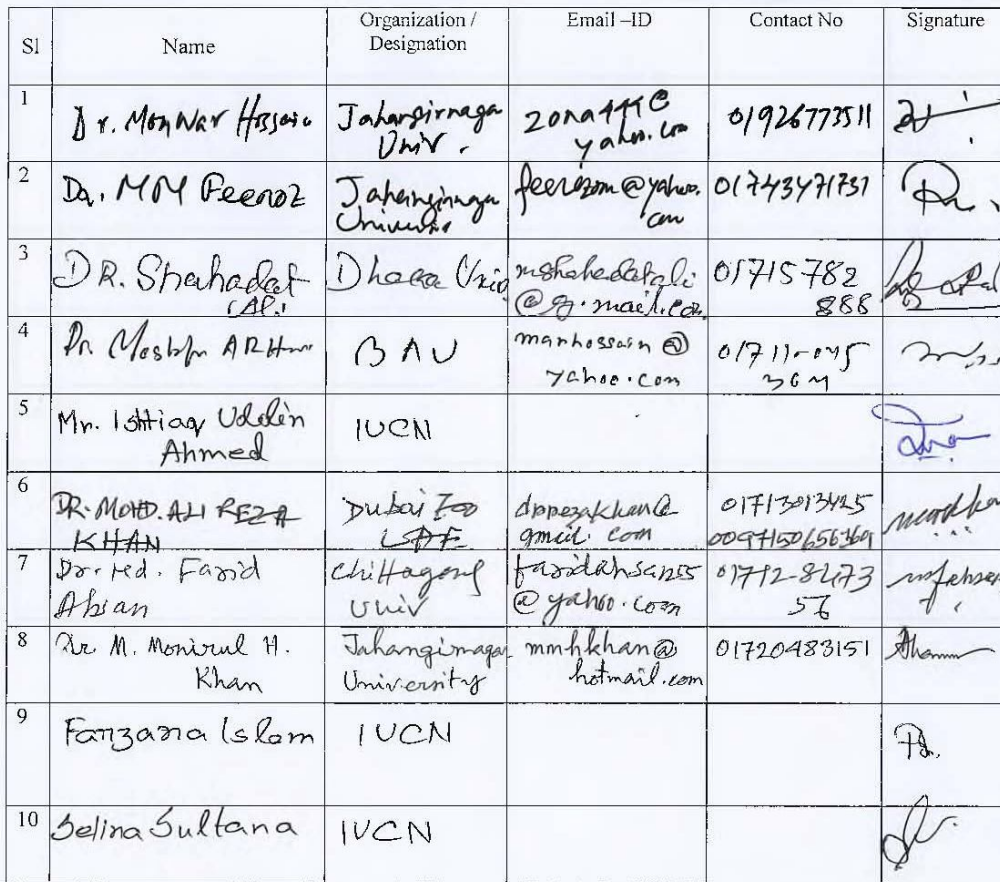 Sl Name Organization / Designation Email –ID Contact No Signature
1 Dr. Monwar Hossain Jahangirnagar Univ. zona441@yahoo.com 01926773511
2 Dr. M M Feeroz Jahangirnagar University feerozmm@yahoo.com 01743471731
3 DR. Shahadat Ali Dhaka Univ mshahadatali@g.mail.com 01715782888
4 Dr. Mostafa AR Hossain BAU marhossain@yahoo.com 01711-045
5 Mr. Ishtiaq Uddin Ahmed IUCN
6 DR. MOHD. ALI REZA KHAN Dubai Zoo UAE drrezakhan@gmail.com 01713013425 00971506563601
7 Dr. Md. Farid Ahsan Chittagong Univ faridahsan55@yahoo.com 01712-847356
8 Dr. M. Monirul H. Khan Jahangirnagar University mmhkhan@hotmail.com 01720483151
9 Farzana Islam IUCN
10 Selina Sultana IUCN